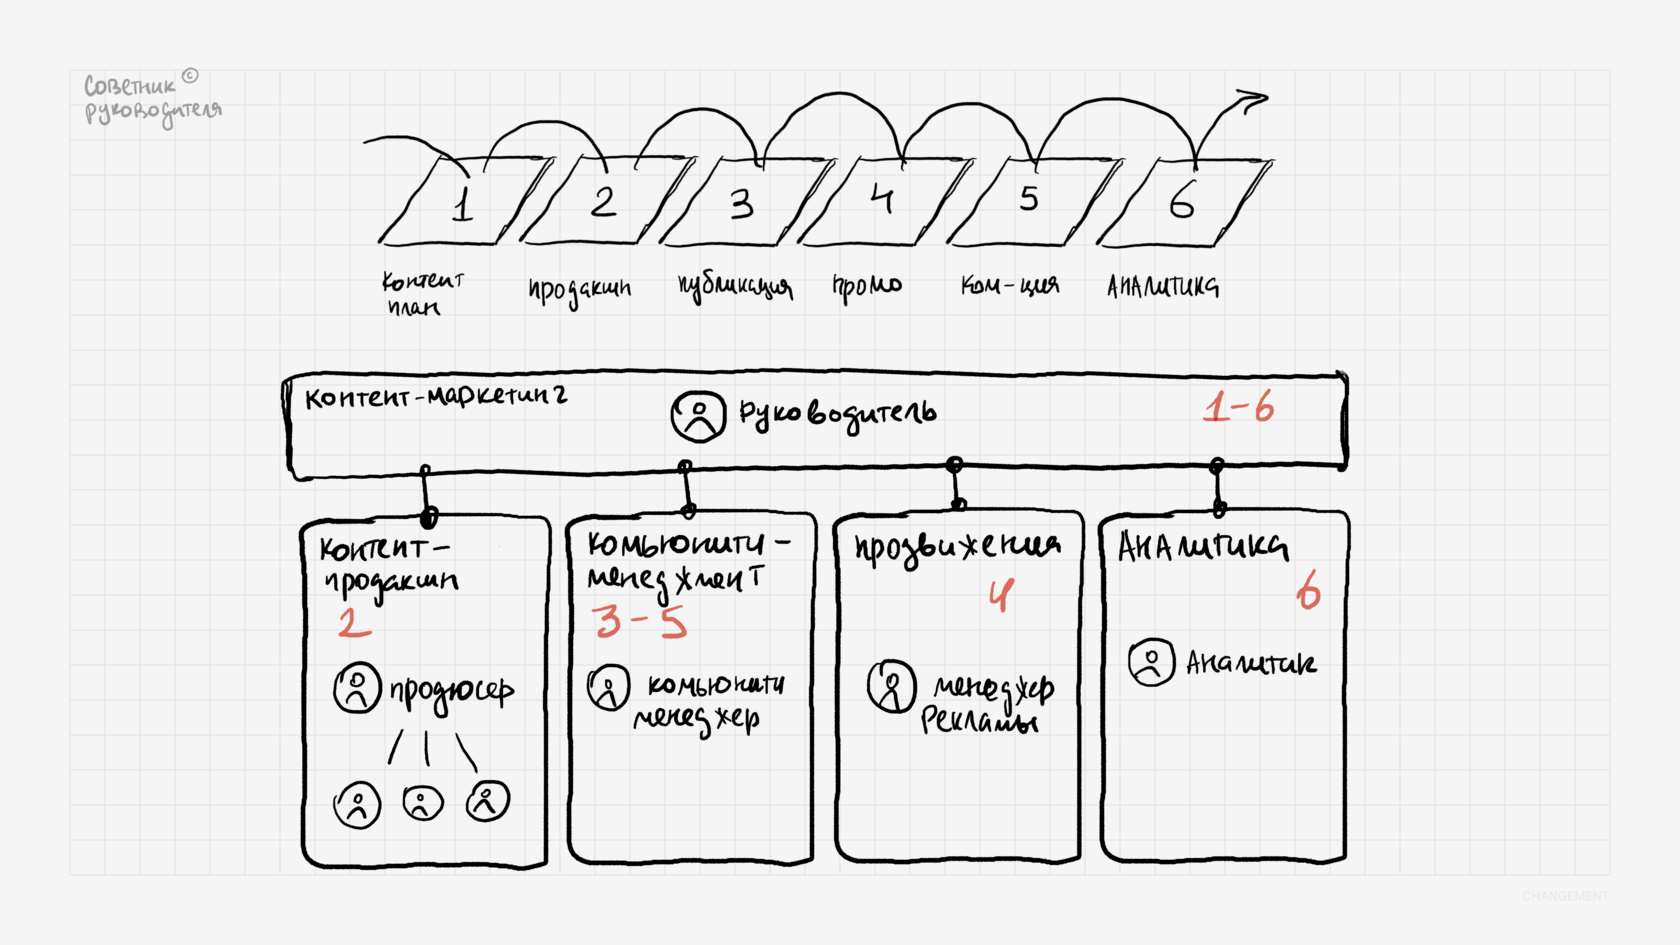 Советник ©
руководителя
1 2 3 4 5 6
контент план
продакшн
публикация
промо
ком-ция
Аналитика
контент-маркетинг
Руководитель
1-6
контент-
продакшн
2
продюсер
комьюнити-
менеджмент
3-5
комьюнити
менеджер
продвижения
4
менеджер
Рекламы
Аналитика
6
Аналитик
CHANGEMENT